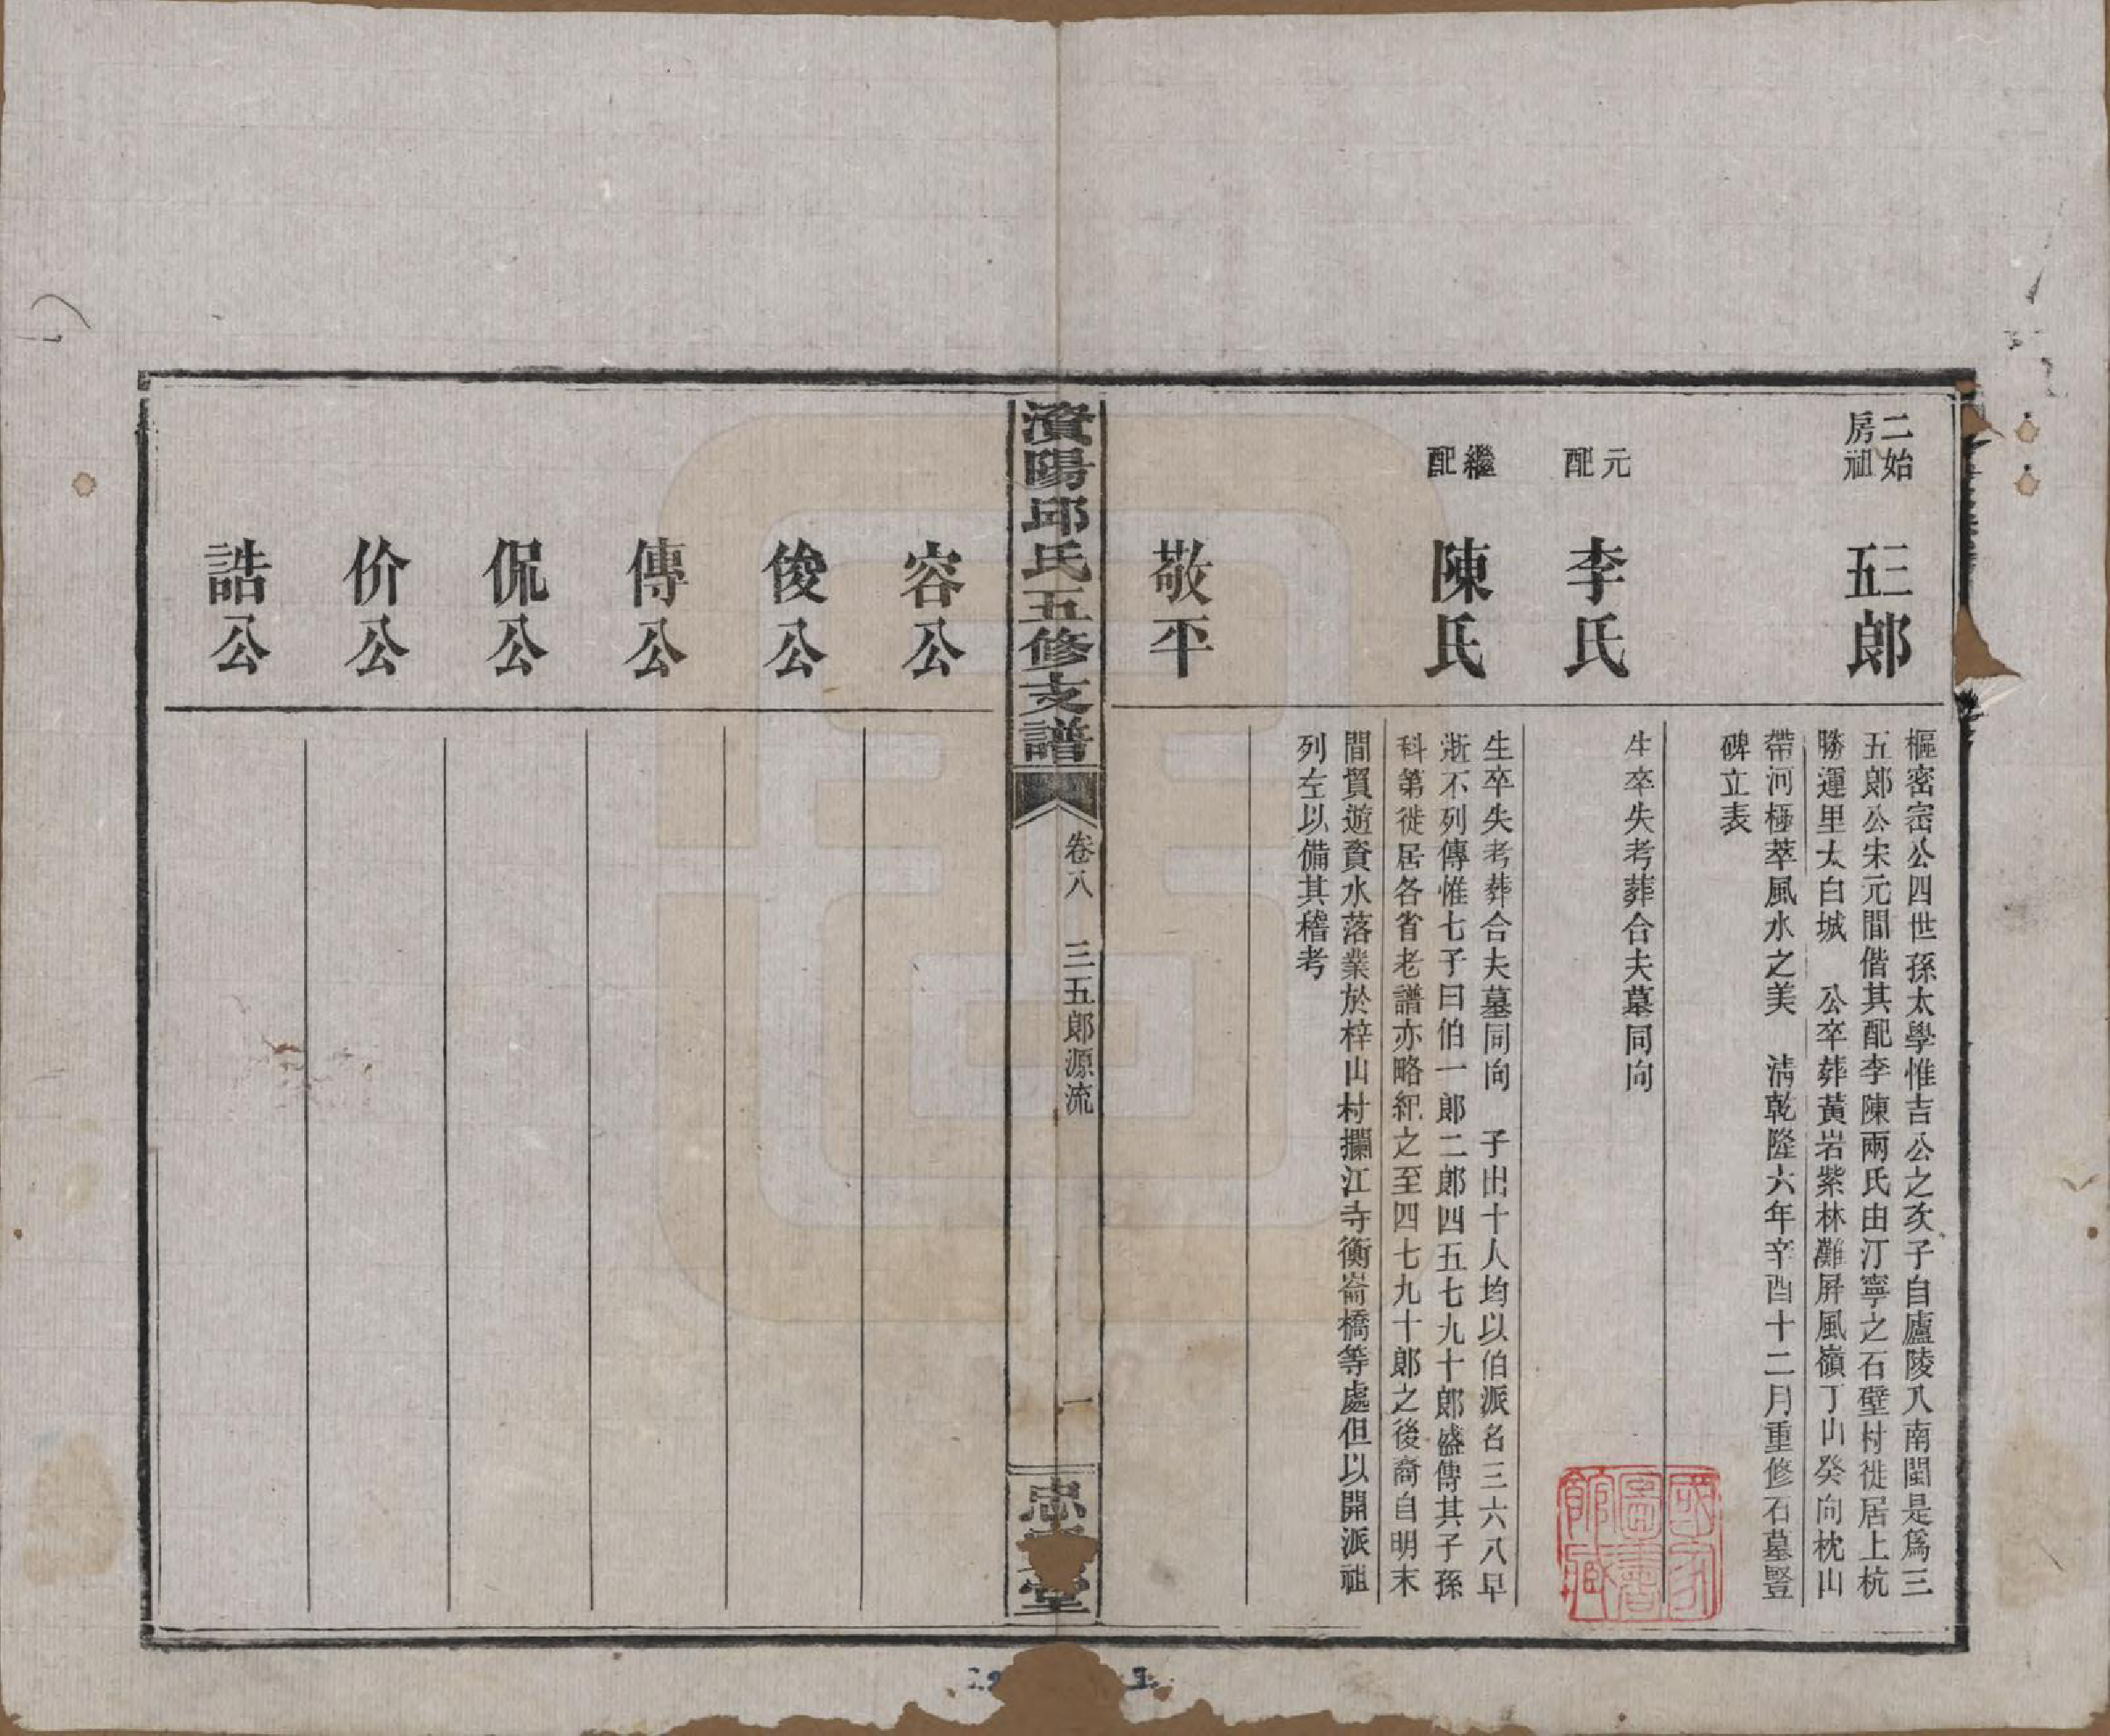 二始
房祖
三
五郎
樞密崈公四世孫太學惟吉公之次子自廬陵入南閩是爲三
五郎公宋元間偕其配李陳兩氏由汀寧之石壁村徙居上杭
勝運里太白城　公卒葬黃岩紫林灘屏風嶺丁山癸向枕山
帶河極萃風水之美　淸乾隆六年辛酉十二月重修石墓豎
碑立表
元配
李氏
生卒失考葬合夫墓同向
繼配
陳氏
生卒失考葬合夫墓同向　子出十人均以伯派名三六八早
逝不列傳惟七子曰伯一郎二郎四五七九十郎盛傳其子孫
科第徙居各省老譜亦略紀之至四七九十郎之後裔自明末
間貿遊資水落業於梓山村攔江寺衡崙橋等處但以開派祖
列左以備其稽考
敬平
濱陽邱氏五修支譜
卷八　三五郎源流
一
忠　堂
容公
俊公
傳公
侃公
价公
誥公
國家
圖書
館藏